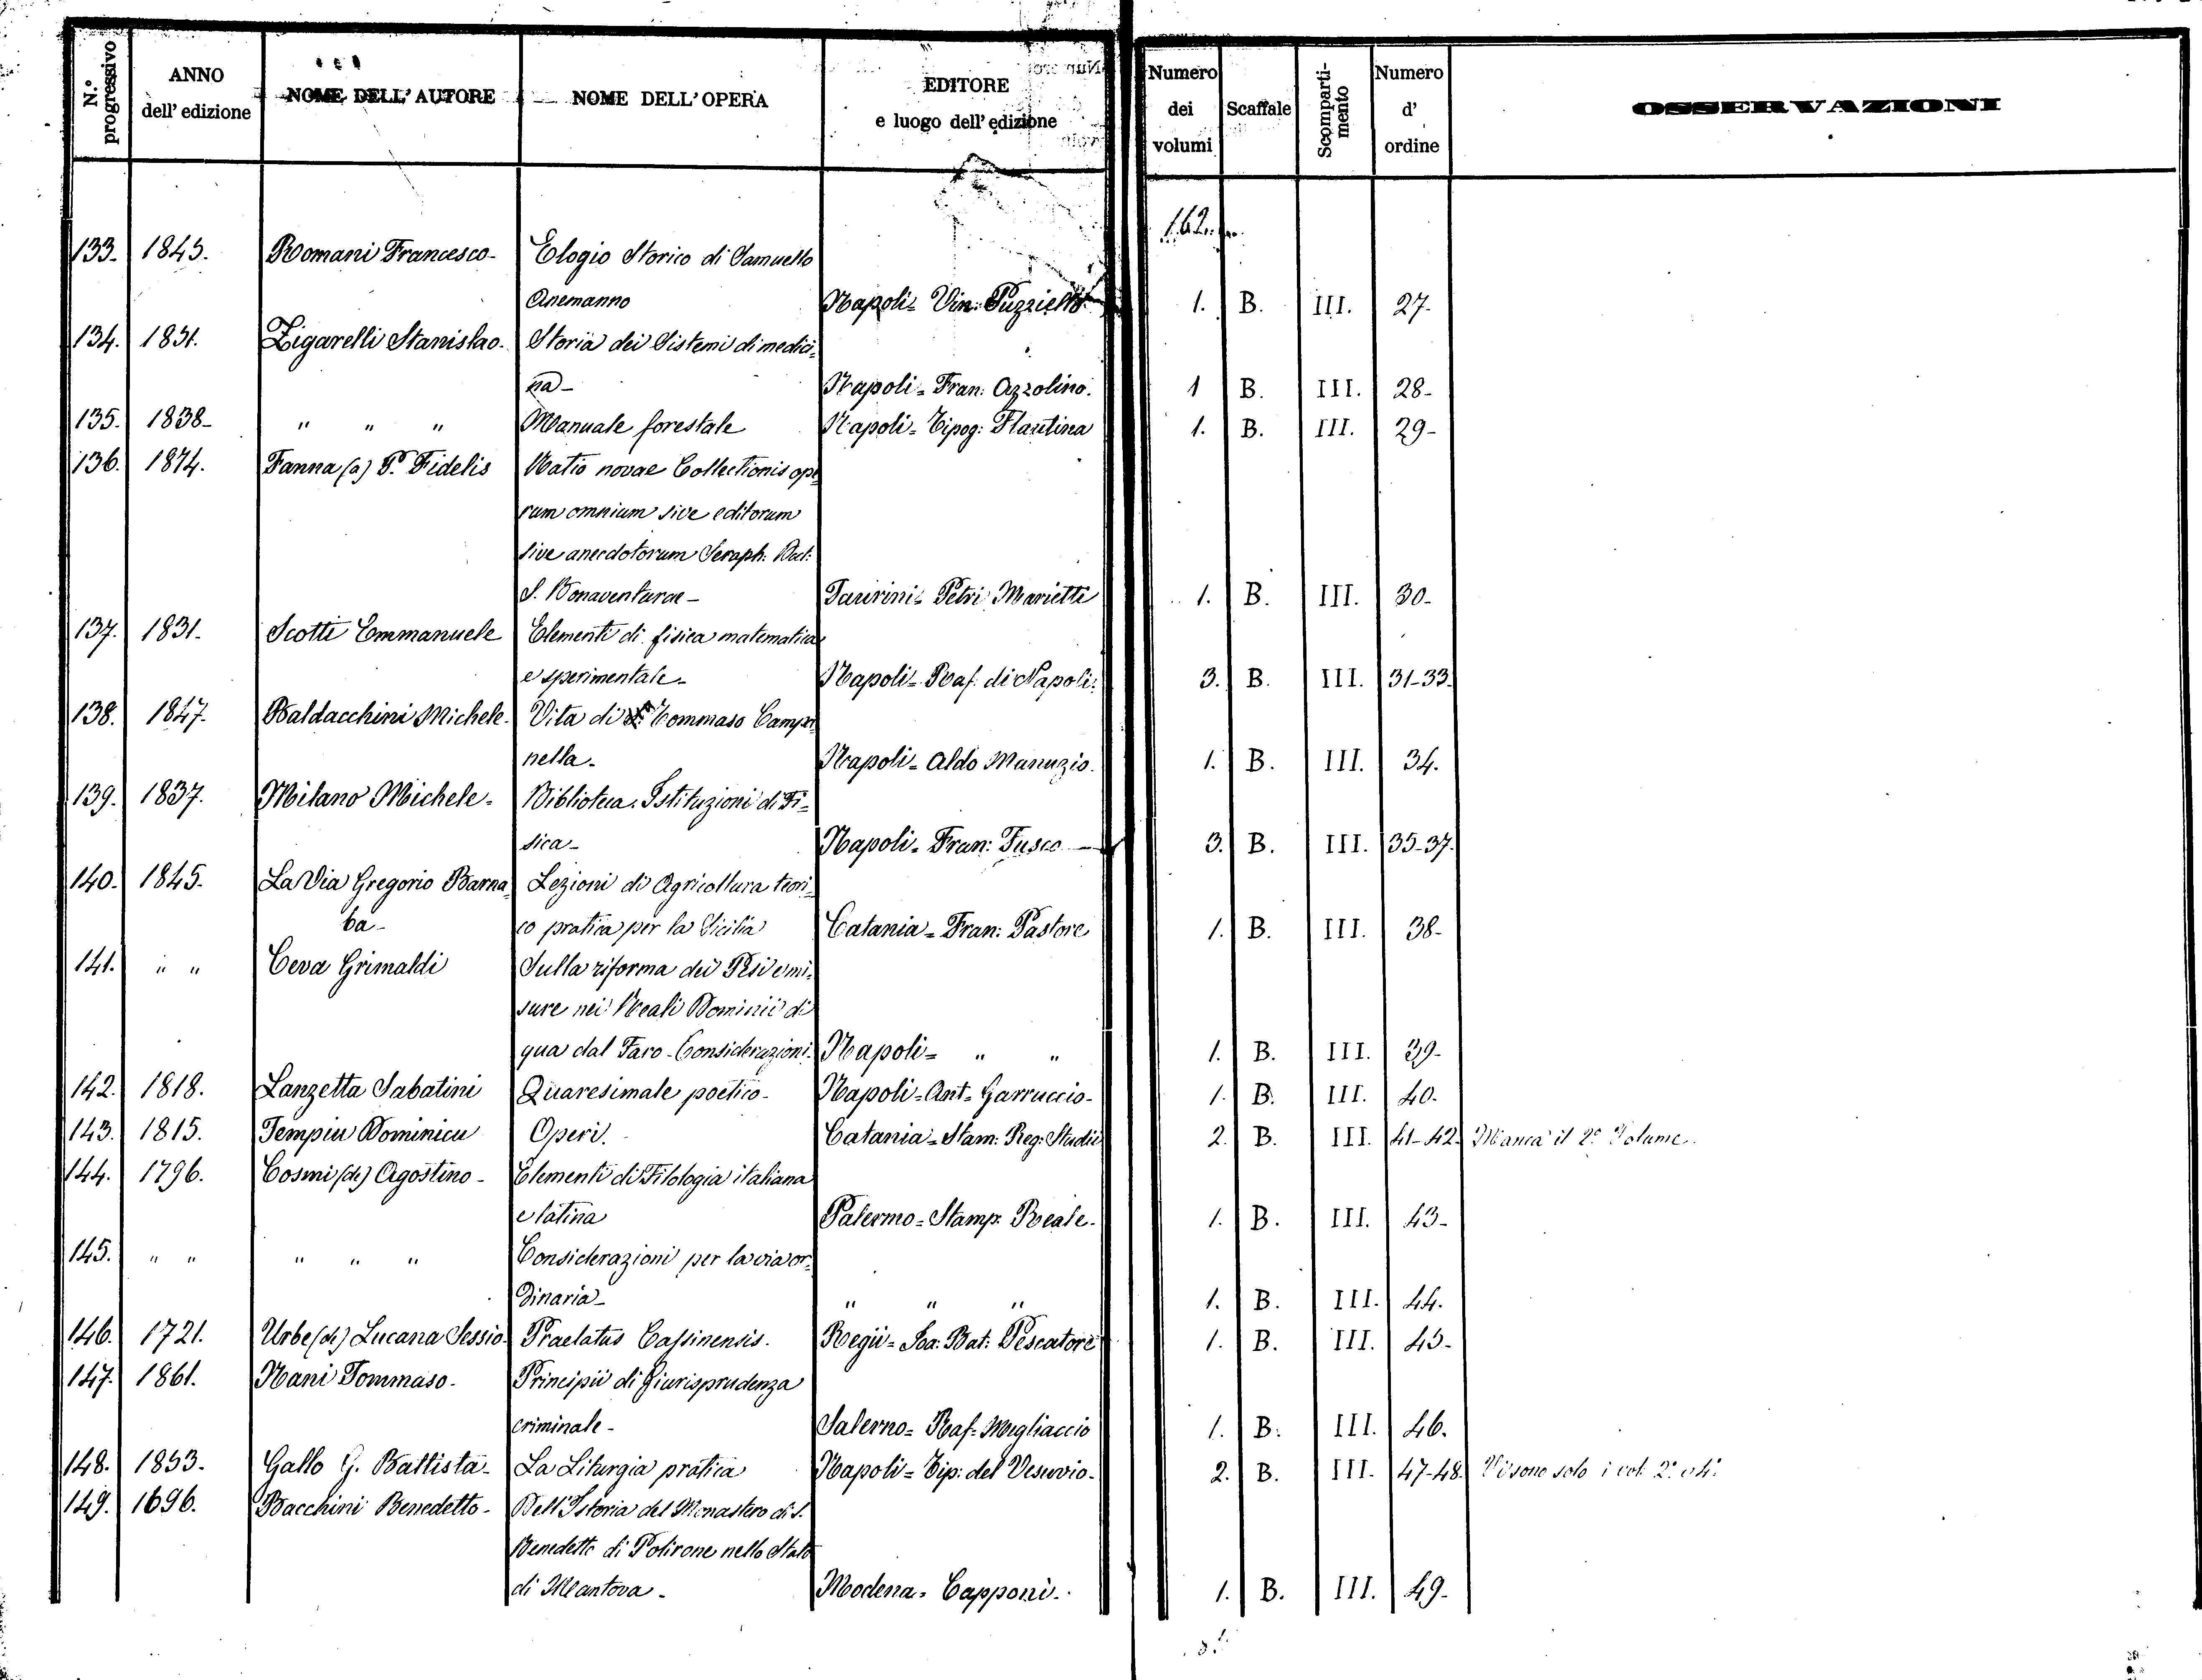 N.° progressivo | ANNO dell' edizione | NOME DELL' AUTORE | NOME DELL' OPERA | EDITORE e luogo dell' edizione | Numero dei volumi | Scaffale | Scomparti-mento | Numero d' ordine | OSSERVAZIONI
162.
133. 1843. Romani Francesco- Elogio Storico di Samuello
Anemanno Napoli= Vin: Puzziello 1. B. III. 27.
134. 1831. Zigarelli Stanislao. Storia dei Sistemi di medici=
na- Napoli= Fran: Azzolino. 1 B. III. 28-
135. 1838- " " " Manuale forestale Napoli= Tipog: Flautina 1. B. III. 29-
136. 1874. Fanna (a) P. Fidelis Ratio novae Collectionis ope
rum omnium sive editorum
sive anecdotorum Seraph: Doct:
S. Bonaventurae- Taurini= Petri Marietti 1. B. III. 30-
137. 1831. Scotti Emmanuele Elementi di fisica matematica
e sperimentale- Napoli= Raf. di Napoli. 3. B. III. 31-33.
138. 1847. Baldacchini Michele. Vita di Tommaso Campa
nella. Napoli= Aldo Manuzio. 1. B. III. 34.
139. 1837. Milano Michele. Biblioteca. Istituzioni di Fi=
sica- Napoli= Fran: Fusco 3. B. III. 35-37.
140. 1845. La Via Gregorio Barna Lezioni di Agricoltura teori=
ba- co pratica per la Sicilia Catania= Fran: Pastore 1. B. III. 38-
141. " " Ceva Grimaldi Sulla riforma dei Pesi e mi=
sure nei Reali Dominii di
qua dal Faro- Considerazioni. Napoli= " " 1. B. III. 39-
142. 1818. Lanzetta Sabatini Quaresimale poetico- Napoli= Ant= Garruccio- 1. B. III. 40.
143. 1815. Tempiu Dominicu Operi. Catania= Stam: Reg: Studii 2. B. III. 41-42. Manca il 2° Volume.
144. 1796. Cosmi (de) Agostino- Elementi di Filologia italiana
e latina Palermo= Stamp. Reale. 1. B. III. 43-
145. " " " " " Considerazioni per la via or=
dinaria- " " " 1. B. III. 44.
146. 1721. Urbe (de) Lucana Sessio. Praelatus Cassinensis. Regii= Ioa: Bat: Pescatore 1. B. III. 45-
147. 1861. Nani Tommaso. Principii di Giurisprudenza
criminale- Salerno= Raf= Migliaccio 1. B. III. 46.
148. 1853. Gallo G. Battista- La Liturgia pratica Napoli= Tip: del Vesuvio- 2. B. III. 47-48. Vi sono solo i vol: 2° e 4°
149. 1696. Bacchini Benedetto- Dell'Istoria del Monastero di S.
Benedetto di Polirone nello Stato
di Mantova- Modena= Capponi- 1. B. III. 49-